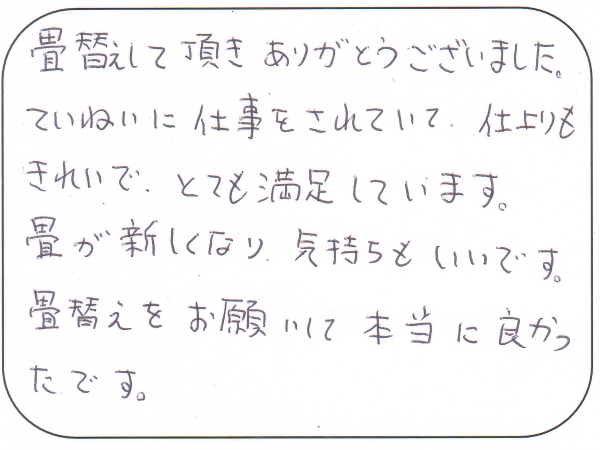 畳替えして頂きありがとうございました。
ていねいに仕事をされていて、仕上りも
きれいで、とても満足しています。
畳が新しくなり、気持ちもいいです。
畳替えをお願いして本当に良かっ
たです。